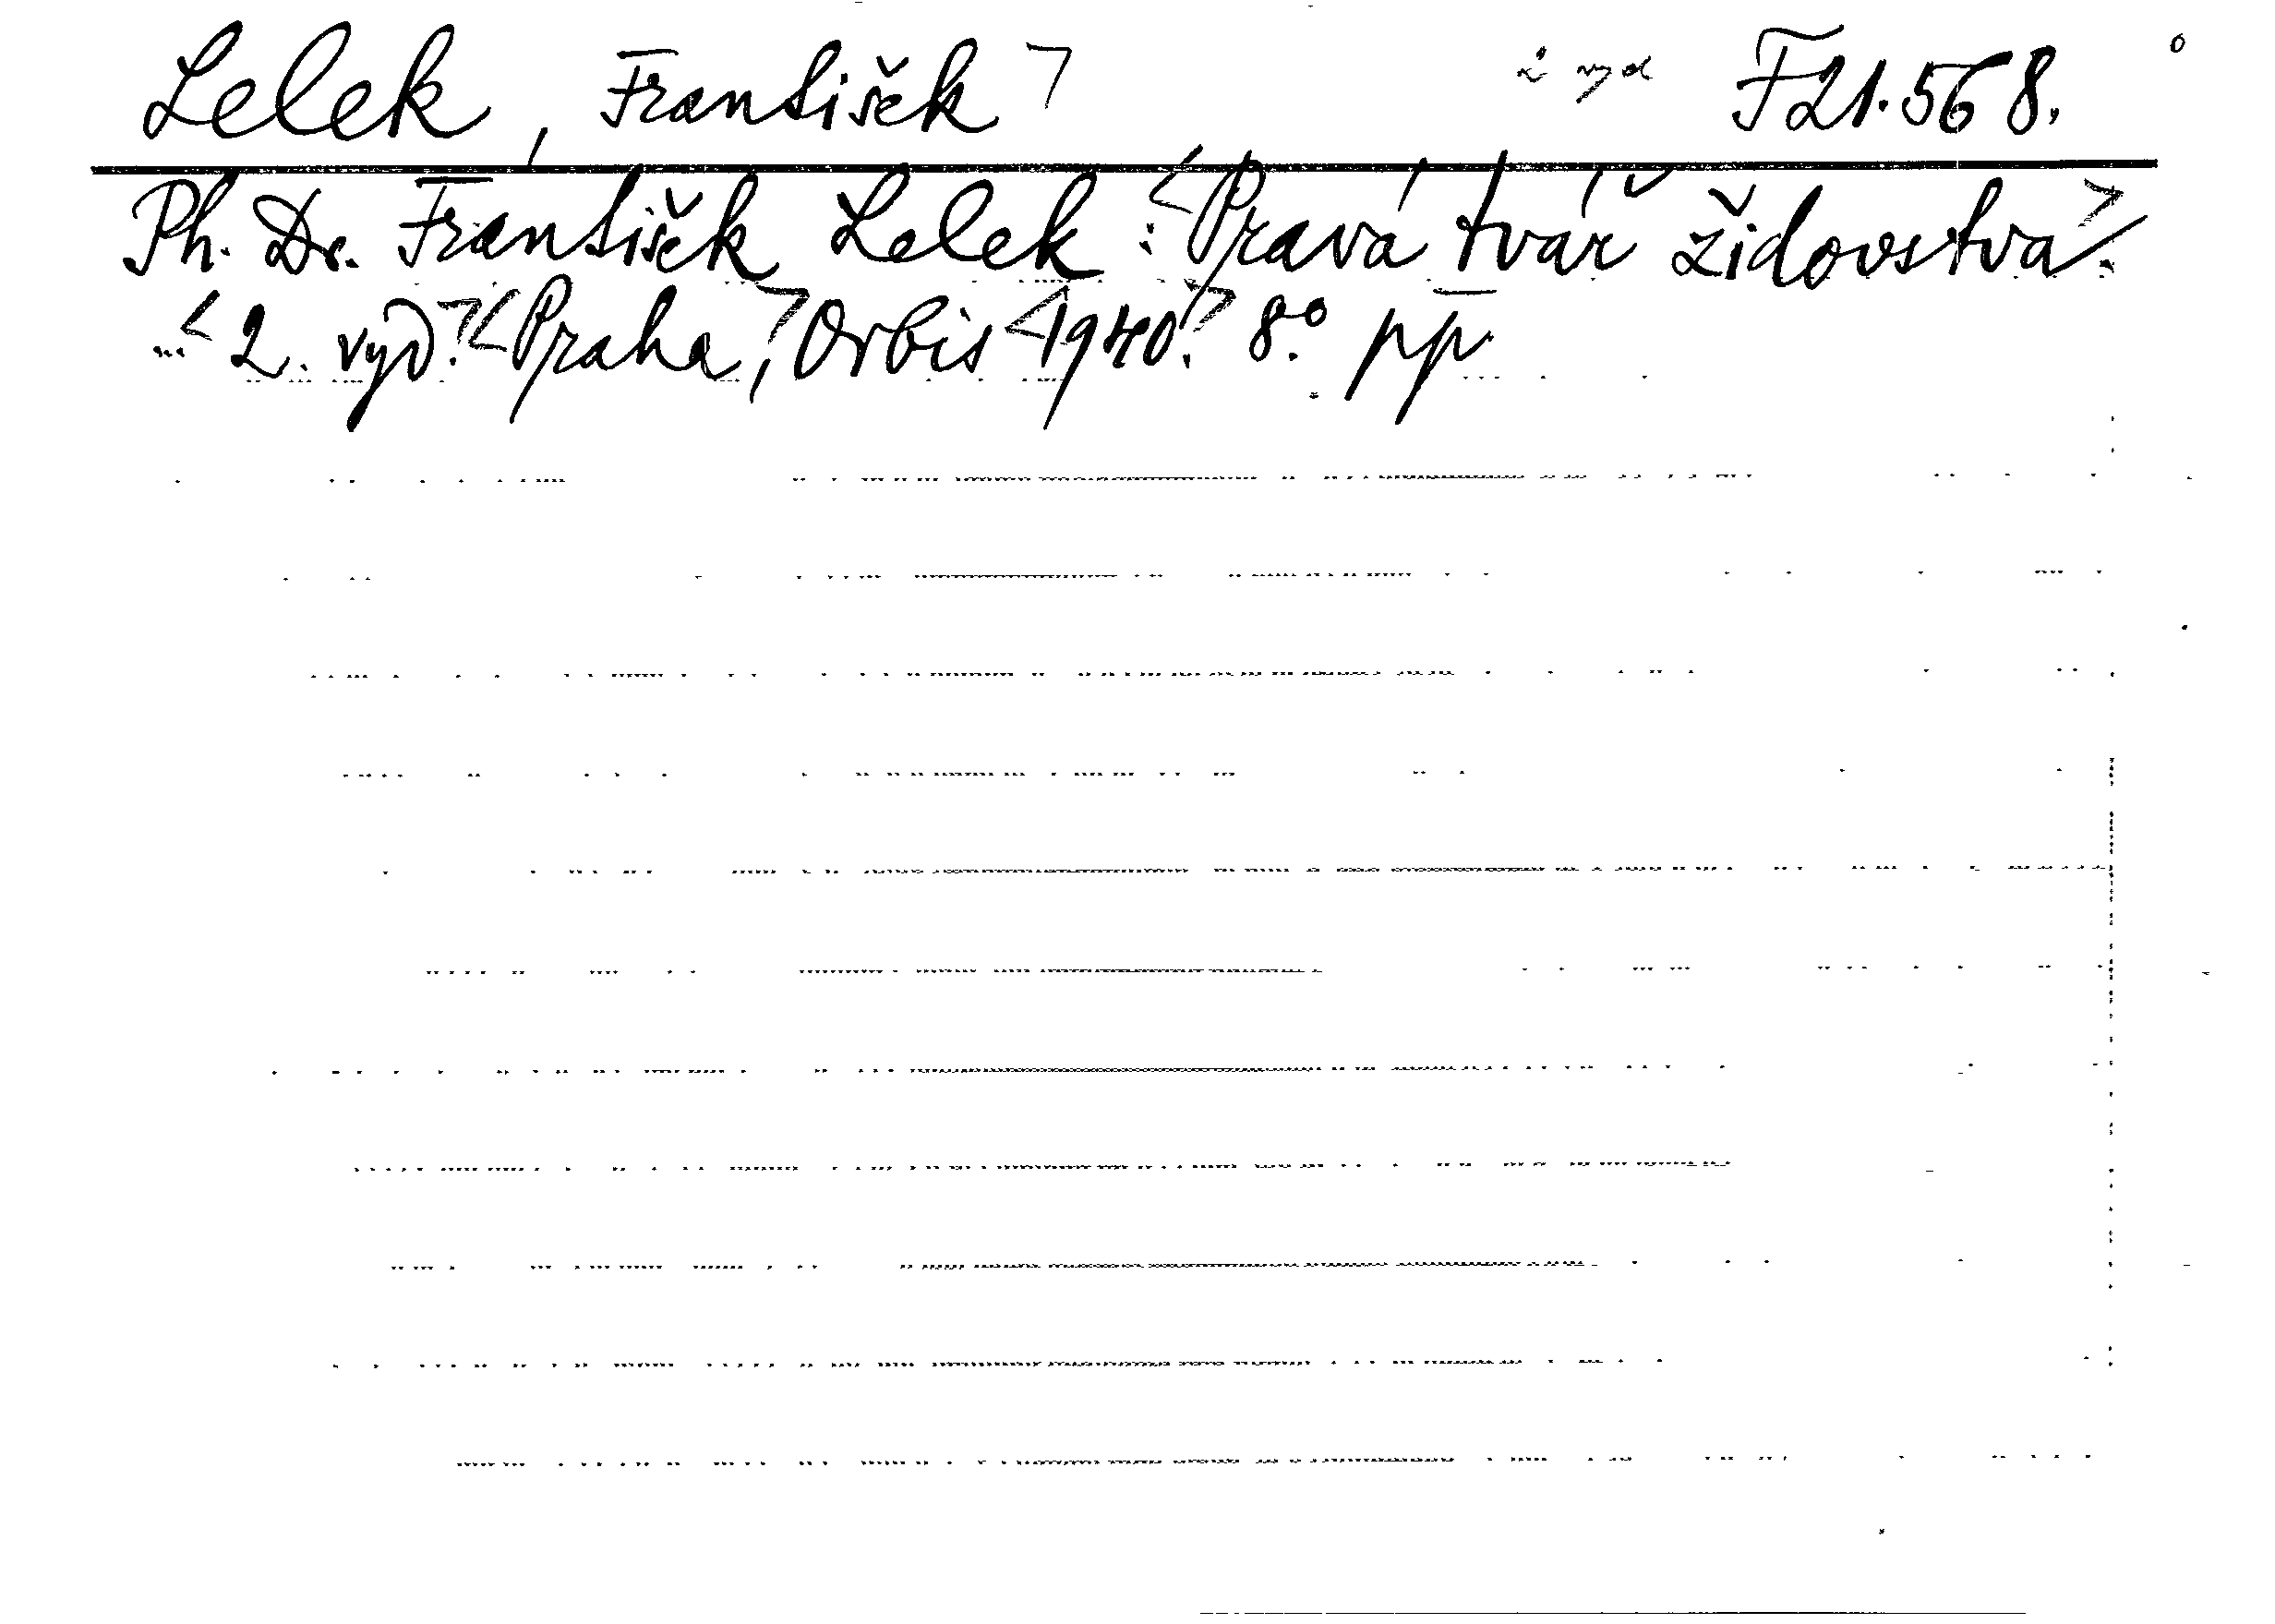 Lelek, František > F21.568.
Ph. Dr. František Lelek : <Pravá tvář židovstva.>
<2. vyd.> <Praha,> Orbis <1940.> 8.° pp